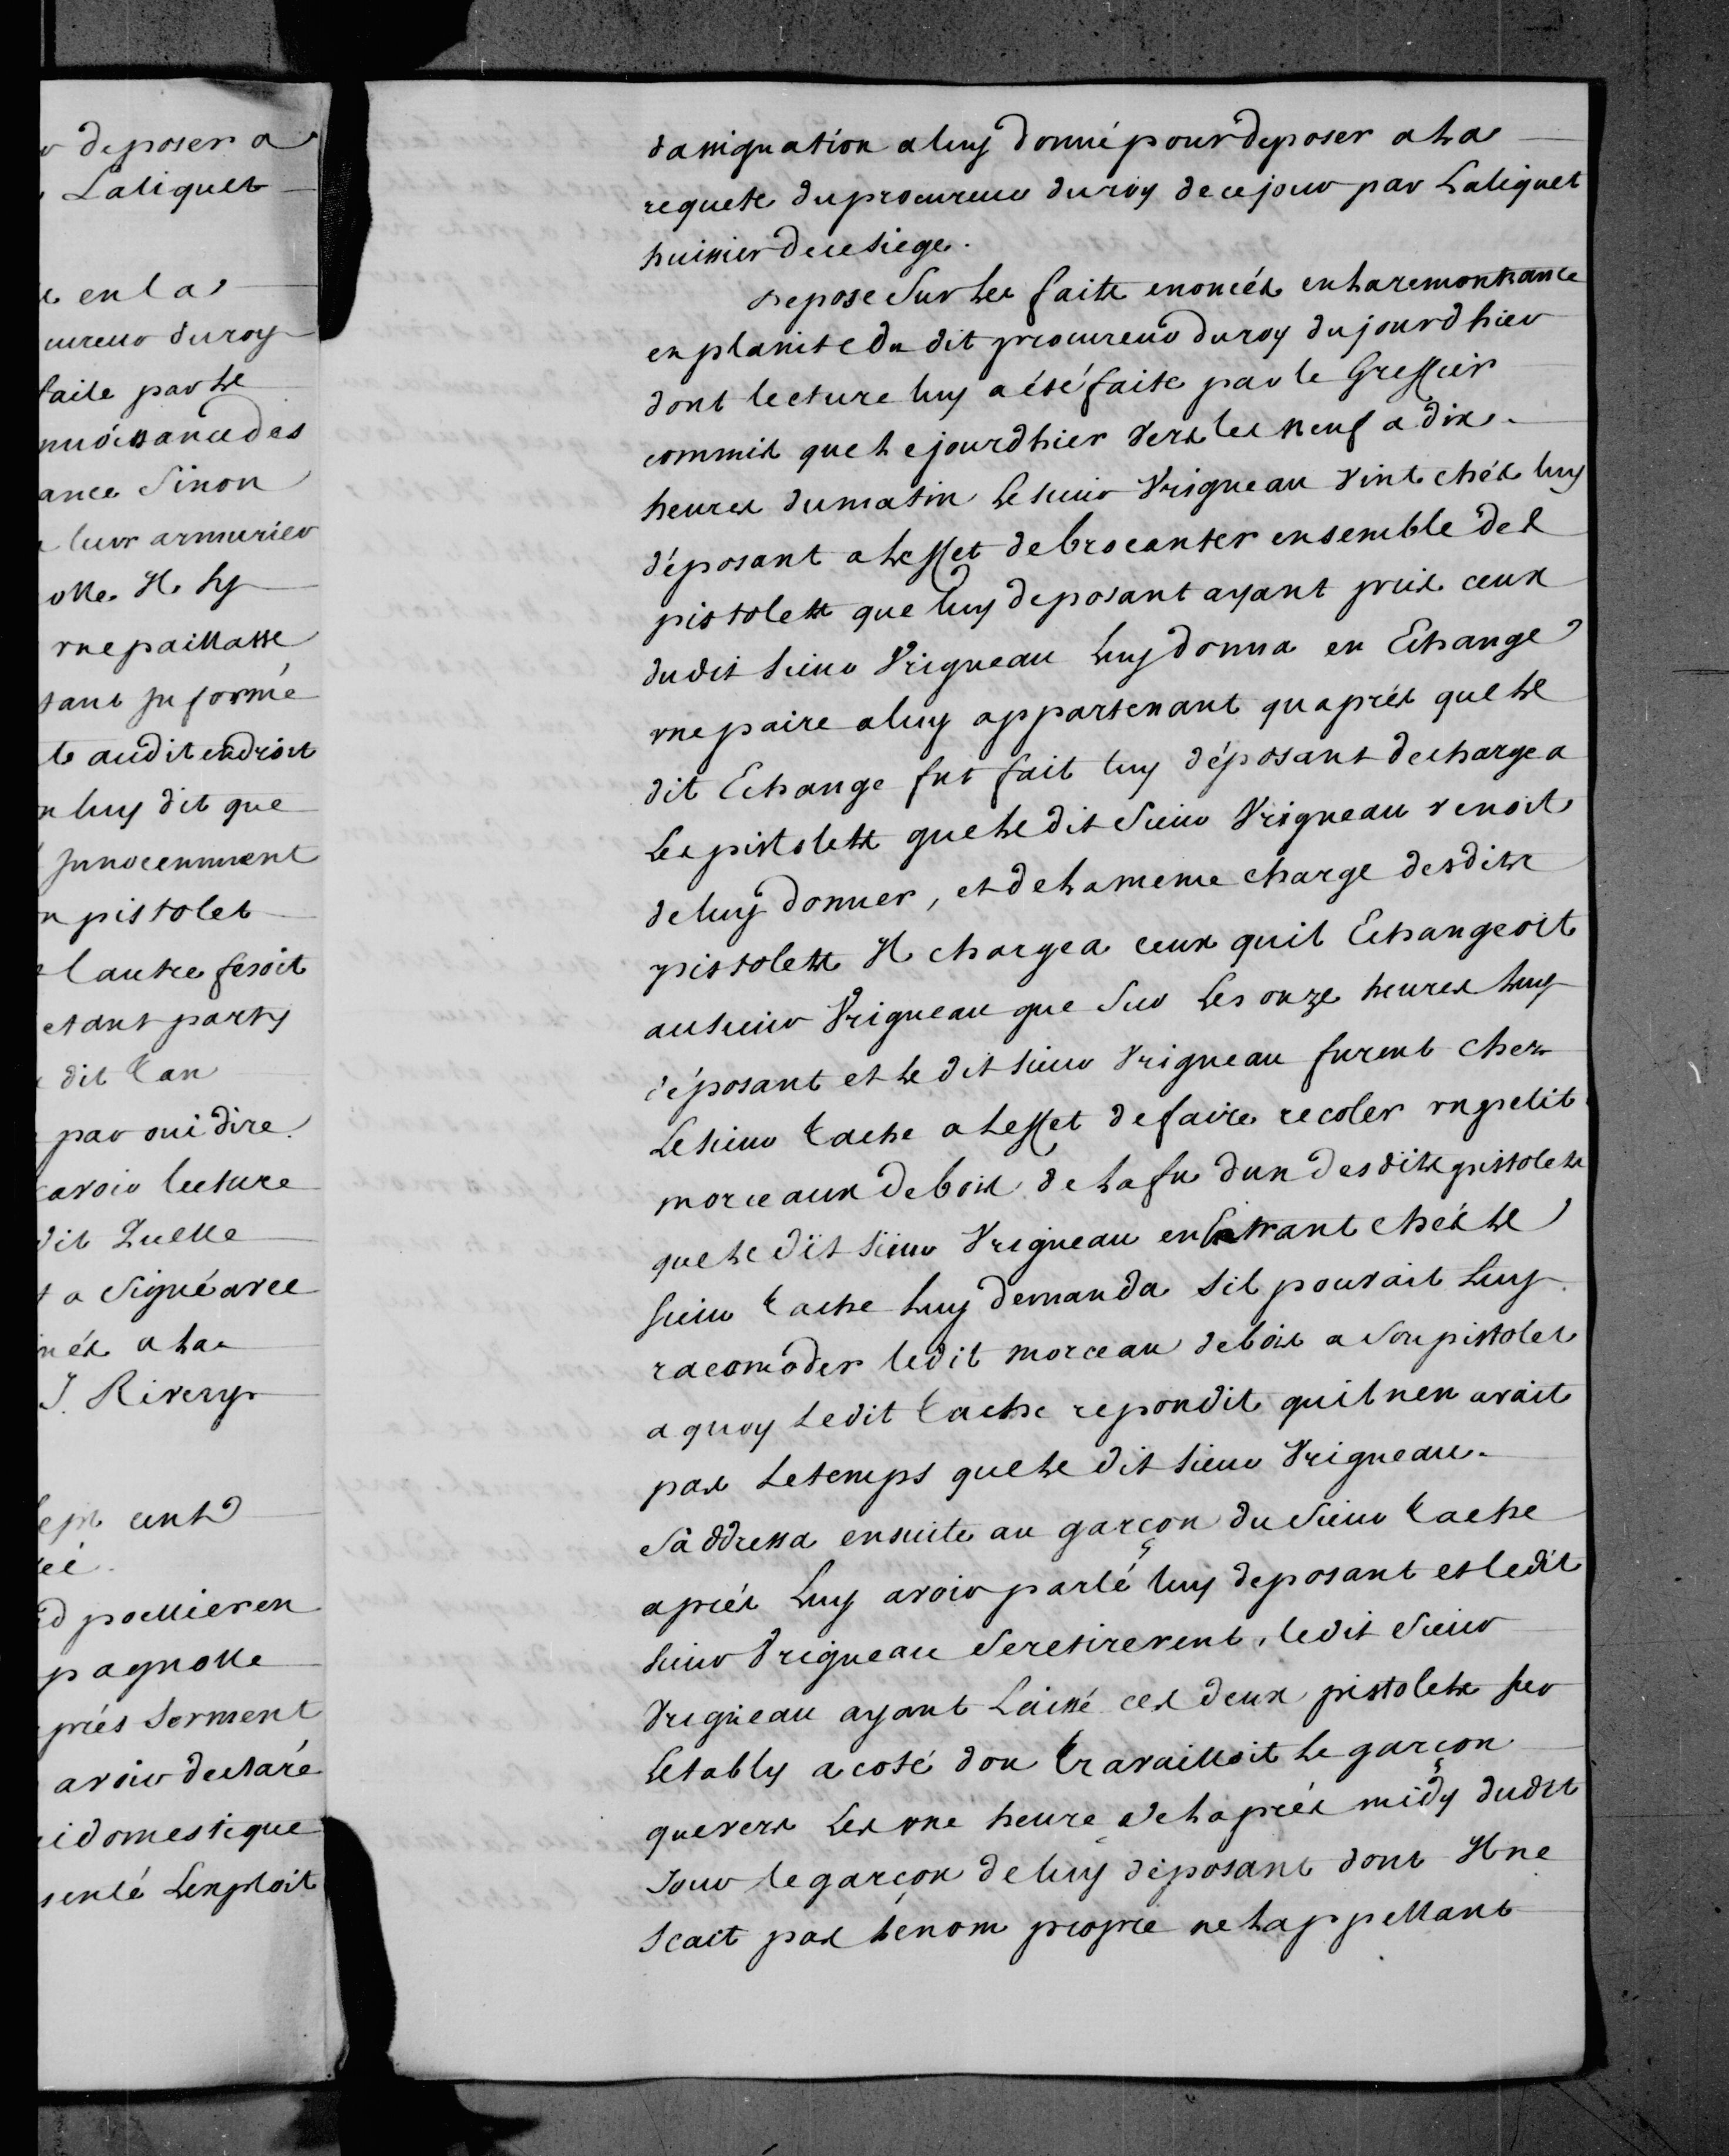 r deposer a
Laliquet
e en la
cureur du roy
faite par le
nnoissance des
ance Sinon
luir armurier
olle Il hy
vne paillasse
tant Informé
le audit endroit
n luy dit que
Innocemment
n pistolet
lautre feroit
etant party
dit tan
par oui dire
avoir lecture
dit Quelle
t a Signé avec
nés a la
J. Rivery
sept cents
eé.
d poellier en
pagnolle
prés serment
avoir declaré
ni domestique
senté Lexploit
dassignation a luy donné pour deposer a la
requete du procureur du roy de ce jour par Laliquet
huissier de ce siege.
Depose Sur les faits enoncés en la remontrance
en plainte du dit procureur du roy du jourdhier
dont lecture luy a été faite par le Greffier
commis que le jourdhier Vers les neuf a dix
heures du matin le sieur Vrigneau Vint chés luy
déposant a leffet de brocanter ensemble des
pistolets que luy deposant ayant pris ceux
dudit sieur Vrigneau luy donna en Echange
vne paire a luy appartenant quaprés que le
dit Echange fut fait luy déposant dechargea
Les pistolets que le dit Sieur Vrigneau venoit
de luy donner, et de la meme charge desdits
pistolets Il chargea ceux quil Echangeoit
au sieur Vrigneau que Sur Les onze heures luy
déposant et le dit sieur Vrigneau furent chez
Le sieur Cache a leffet de faire recoler vn petit
morceaux de bois de la fu dun desdits pistolets
que le dit sieur Vrigneau en Entrant chés le
sieur Cache luy demanda sil pouvait luy
racomoder ledit morceau de bois a Son pistolet
a quoy ledit Cache repondit quil nen avait
pas le temps que le dit sieur Vrigneau
Sáddressa ensuite au garçon du Sieur Cache
aprés Luy avoir parlé luy deposant et ledit
sieur Vrigneau Se retirerent, ledit Sieur
Vrigneau ayant Laissé ces deux pistolets sur
Letably a coté dou travailloit le garçon
que vers Les vne heure de laprés midy dudit
Jour le garçon de luy déposant dont Il ne
Scait pas le nom propre ne lappellant